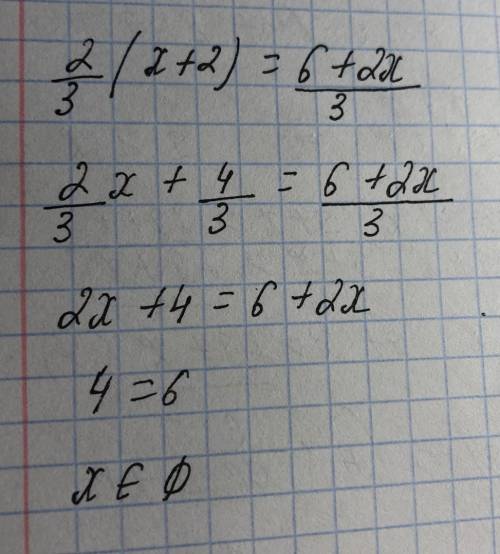 2/3 (x+2) = 6+2x/3
2/3 x + 4/3 = 6+2x/3
2x+4=6+2x
4=6
x∈∅